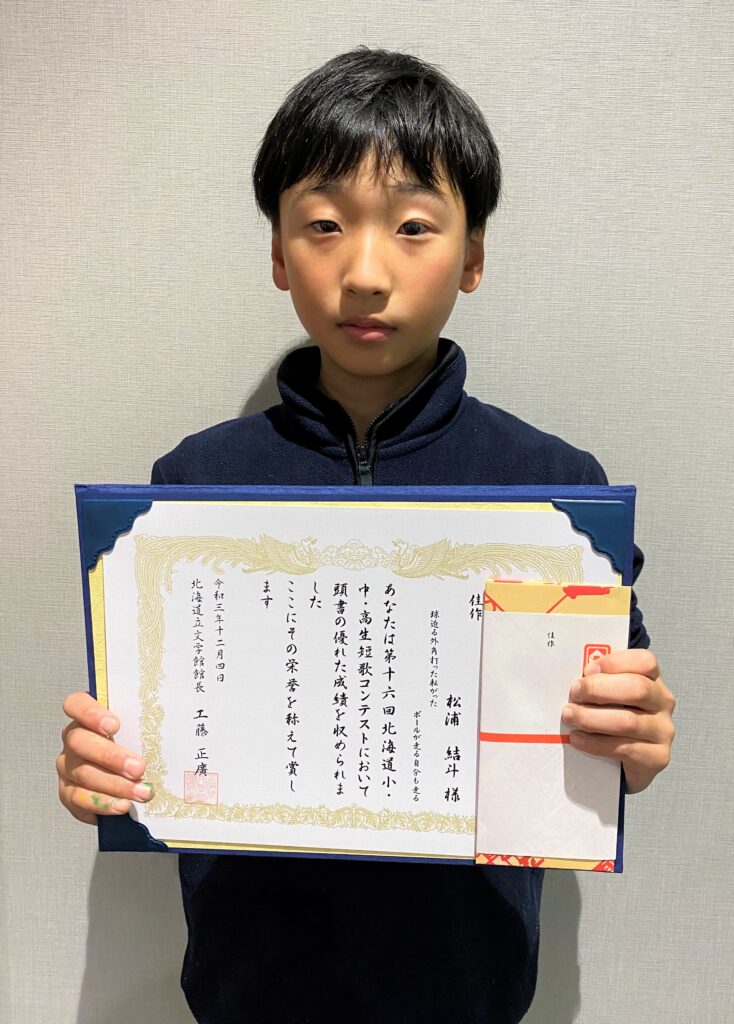 佳作
球迫る外角打った転がった
ボールが走る自分も走る
松浦 結斗 様
あなたは第十六回北海道小・
中・高生短歌コンテストにおいて
頭書の優れた成績を収められま
した
ここにその栄誉を称えて賞し
ます
令和三年十二月四日
北海道立文学館館長 工藤 正廣
佳作